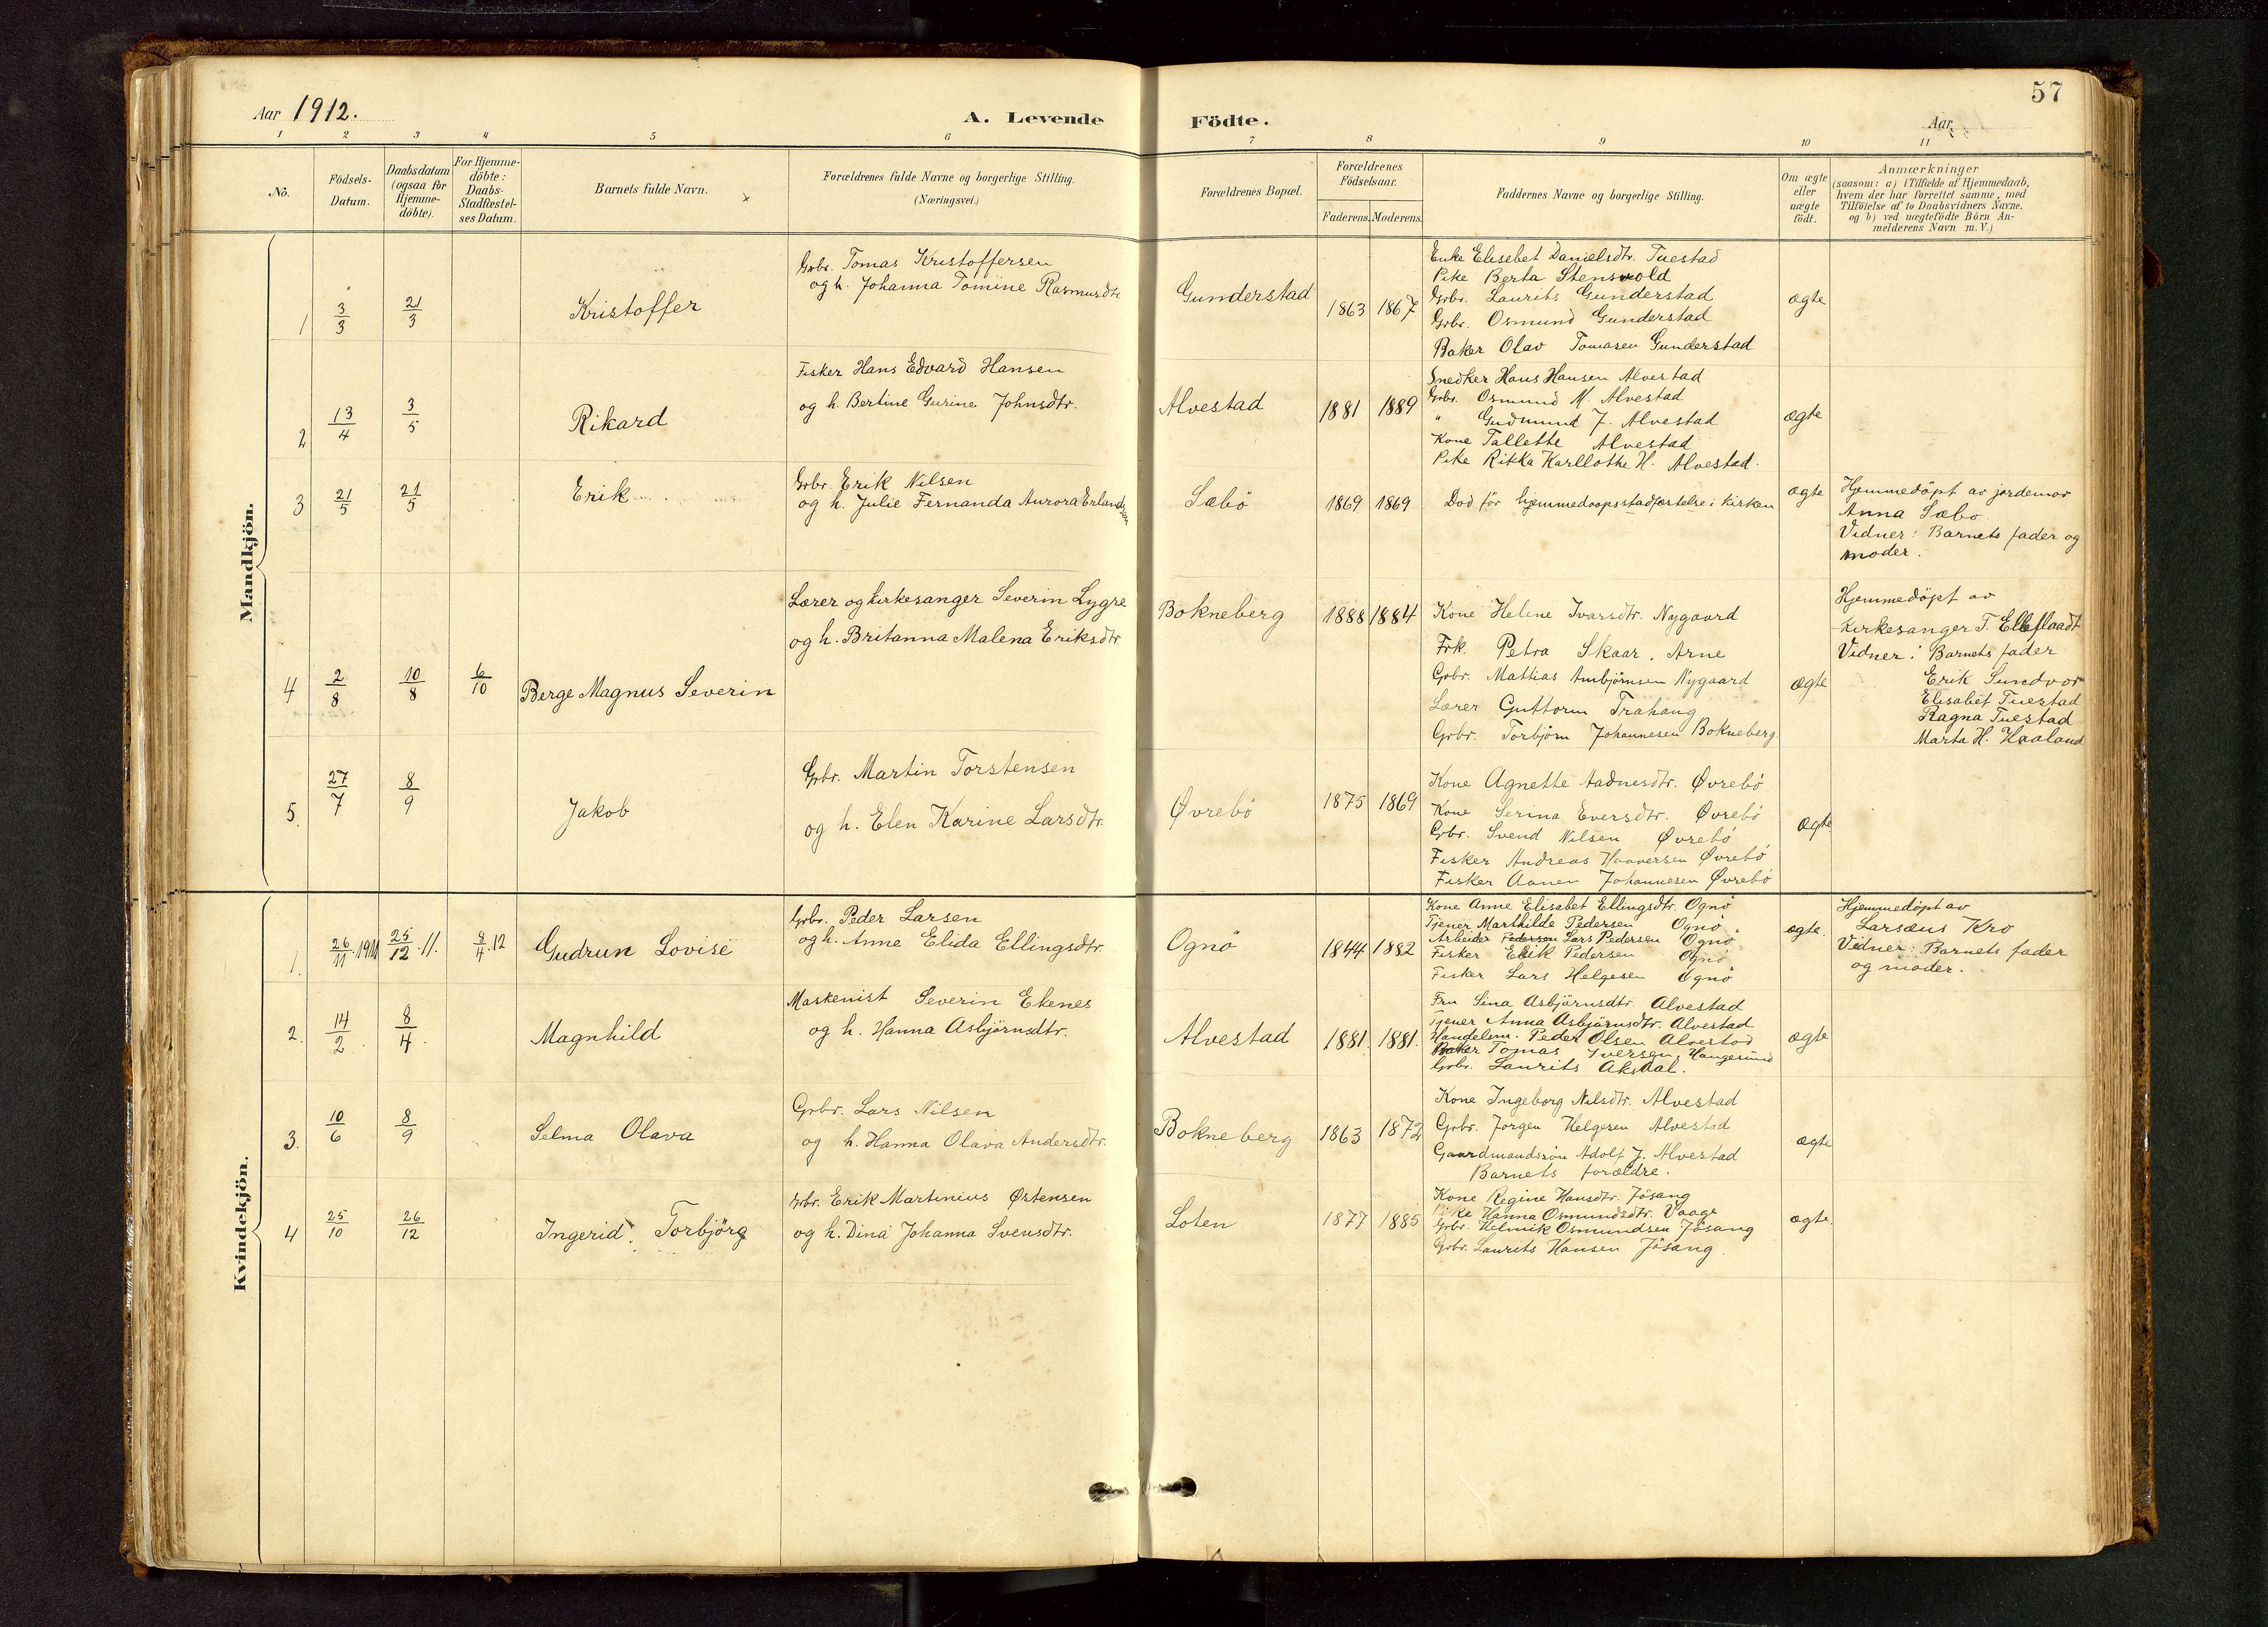 57
Aar 1912.
A. Levende Födte.
Aar
1 2 3 4 5 6 7 8 9 10 11
No.
Födsels-
Datum.
Daabsdatum
(ogsaa for
Hjemme-
döbte).
For Hjemme-
döbte:
Daabs-
Stadfestel-
ses Datum.
Barnets fulde Navn.
Forældrenes fulde Navne og borgerlige Stilling.
(Næringsvei.)
Forældrenes Bopæl.
Forældrenes
Födselsaar.
Faderens. Moderens.
Faddernes Navne og borgerlige Stilling.
Om ægte
eller
uægte
födt.
Anmærkninger
(saasom: a) i Tilfælde af Hjemmedaab,
hvem der har forrettet samme, med
Tilföielse af to Daabsvidners Navne,
og b) ved uægtefödte Börn An-
melderens Navn m. V.)
Mandkjön.
1 3/3 21/3 Kristoffer
Grbr. Tomas Kristoffersen
og h. Johanna Tomine Rasmusdtr
Gunderstad 1863 1867
Enke Elisebet Danielsdtr. Tuestad
Pike Berta Stensvold
Grbr. Laurits Gunderstad
Grbr. Osmund Gunderstad
Baker Olav Tomasen Gunderstad
ægte
2 13/4 3/5 Rikard
Fisker Hans Edvard Hansen
og h. Bertine Gurine Johnsdtr.
Alvestad 1881 1889
Snedker Hans Hansen Alvestad
Grbr. Osmund M. Alvestad
" Gudmund J. Alvestad
Kone Tallette Alvestad
Pike Rikka Karllothe H. Alvestad.
ægte
3 21/5 21/5 Erik
Grbr. Erik Nilsen
og h. Julie Fernanda Aurora Erlandsen
Sæbö 1869 1869
Död för hjemmedaapsstadfæstelse i kirken
ægte
Hjemmedöpt av jordemor
Anna Sæbö
Vidner: Barnets fader og
moder.
4 2/8 10/8 6/10 Berge Magnus Severin
Lærer og kirkesanger Severin Lygre
og h. Britanna Malena Eriksdtr
Bokneberg 1888 1884
Kone Helene Ivarsdtr. Nygaard
Frk. Petra Skaar. Arne
Grbr. Mattias Ambjörnsen Nygaard
Lærer Guttorm Trahaug
Grbr. Torbjörn Johannesen Bokneberg.
ægte
Hjemmedöpt av
Kirkesanger T. Elleflaadt
Vidner: Barnets fader
Erik Sundvor
Elisabet Tuestad
Ragna Tuestad
Marta H. Haaland
5. 27/7 8/9 Jakob
Grbr. Martin Torstensen
og h. Elen Karine Larsdtr.
Øvrebö 1875 1869
Kone Agnette Aadnesdtr. Øvrebö
Kone Serina Eversdtr. Øvrebö
Grbr. Svend Nilsen Øvrebö
Fisker Andreas Haaversen Øvrebö
Fisker Aanen Johannesen Øvrebö
ægte
Kvindekjön.
1. 26/11 1911 25/12 .11. 8/4 .12 Gudrun Lovise
Grbr. Peder Larsen
og h. Anne Elida Ellingsdtr.
Ognö 1844 1882
Kone Anne Elisabet Ellingsdtr. Ognö
Tjener Marthilde Pedersen Ognö.
Arbeider Pedersen Lars Pedersen Ognö
Fisker Erik Pedersen Ognö
Fisker Lars Helgesen Ognö
ægte.
Hjemmedöpt av
Larsæus Kro
Vidner: Barnets fader
og moder.
2. 14/2. 8/4. Magnhild
Maskenist Severin Ekenes
og h. Hanna Asbjörnsdtr.
Alvestad 1881. 1881.
Fru Sina Asbjörnsdtr. Alvestad
Tjener Anna Asbjörnsdtr. Alvestad
Handelsm. Peder Olsen Alvestad
Baker Tomas Iversen, Haugesund
Grbr. Laurits Aksdal.
ægte
3. 10/6 8/9 Selma Olava
Grbr. Lars Nilsen
og h. Hanna Olava Andersdtr.
Bokneberg 1863 1872
Kone Ingeborg Nilsdtr. Alvestad
Grbr. Jorgen Helgesen Alvestad
Gaardmandssön Adolf J. Alvestad
Barnets forældre.
ægte
4 25/10 26/12 Ingerid Torbjörg
Grbr. Erik Martinius Østensen
og h. Dina Johanna Svensdtr.
Loten 1877 1885
Kone Regine Hansdtr. Jösang
Pike Hanna Osmundsdtr. Vaage
Grbr. Helmik Osmundsen Jösang
Grbr. Laurits Hansen Jösang.
ægte.